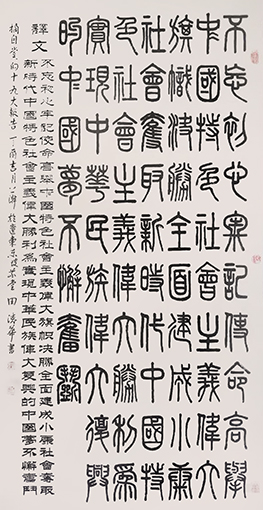 不忘初心牢記使命高舉
中國特色社會主義偉大
旗幟決勝全面建成小康
社會奪取新時代中國特
色社會主義偉大勝利為
實現中華民族偉大復興
的中國夢不懈奮鬥
釋文 不忘初心牢記使命高舉中國特色社會主義偉大旗幟決勝全面建成小康社會奪取
新時代中國特色社會主義偉大勝利為實現中華民族偉大復興的中國夢不懈奮鬥
摘自黨的十九大報告 丁酉 田 書